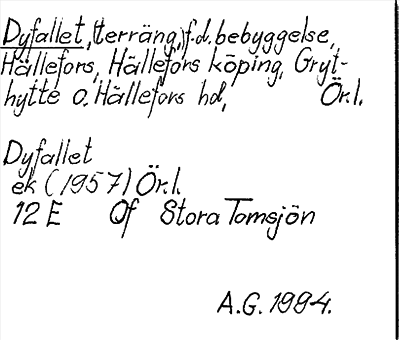 Dyfallet, (terräng,) f.d. bebyggelse,
Hällefors, Hällefors köping, Gryt-
hytte o. Hällefors hd, Ör.l.
Dyfallet
ek (1957) Ör.l.
12 E Of Stora Tomsjön
A.G. 1994.